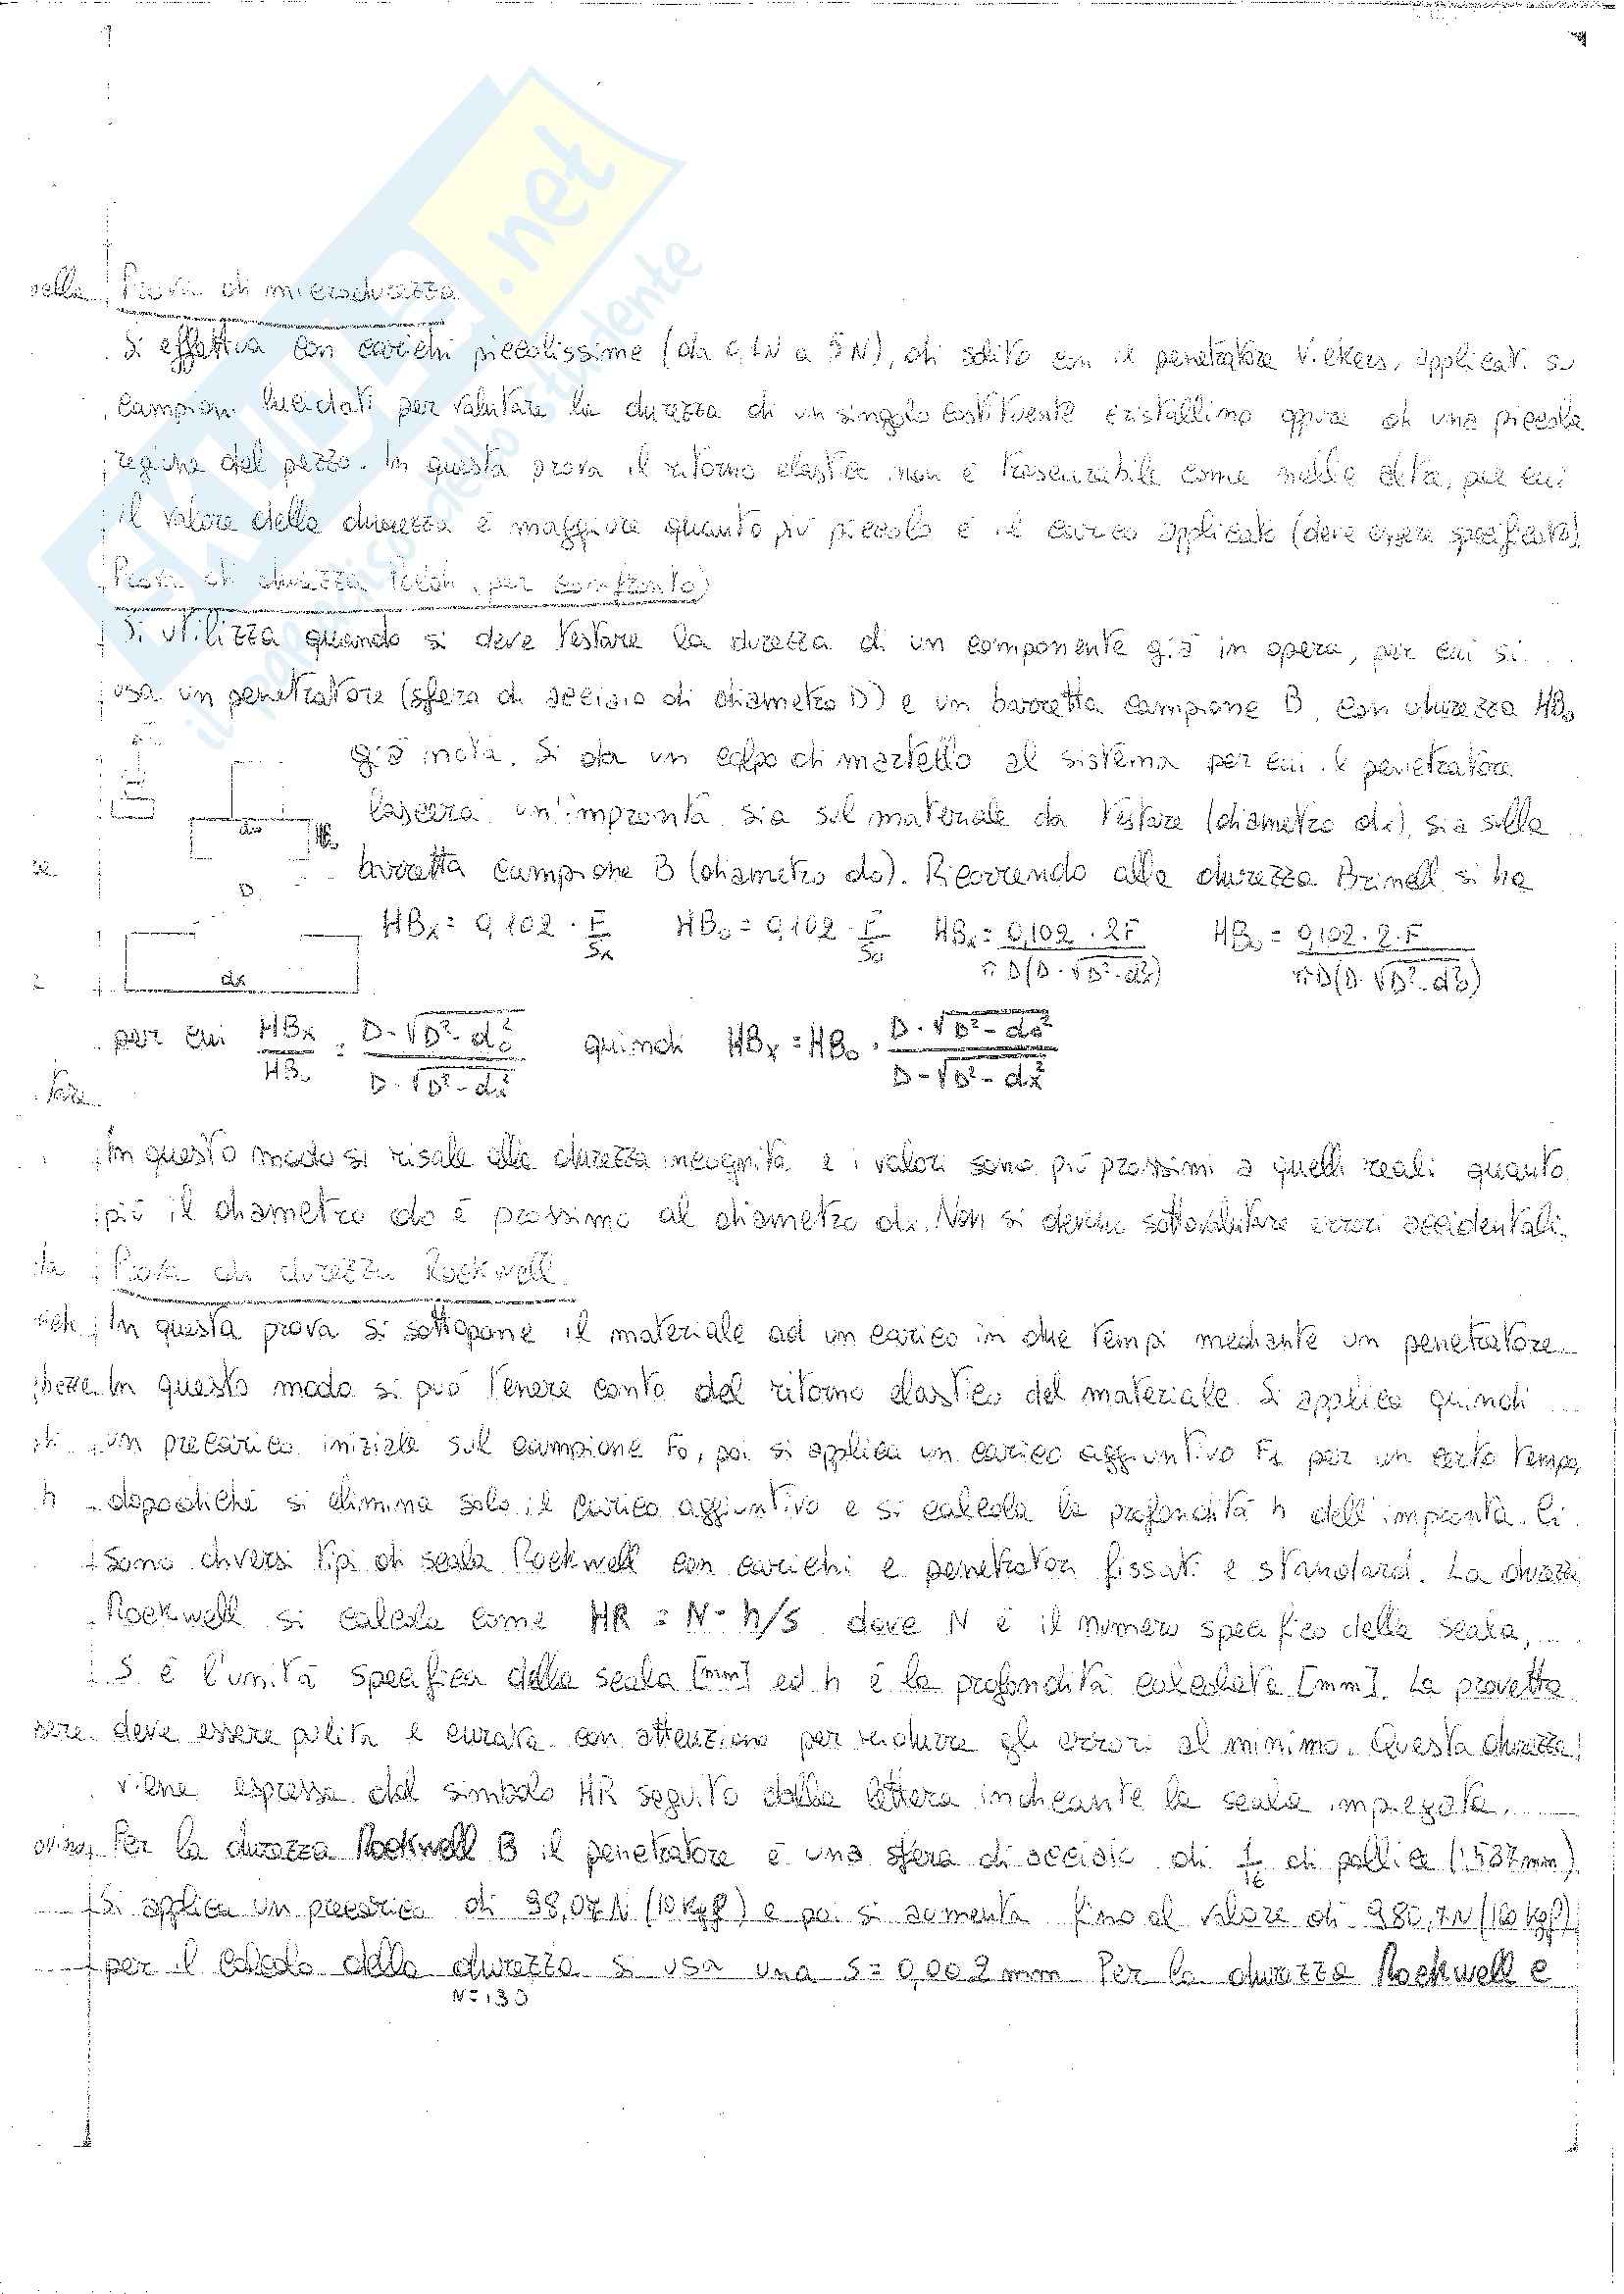 .net
nella
Prova di microdurezza
Si effettua con carichi piccolissime (da 0,1N a 5N), di solito con il penetratore Vickers, applicati su
campioni lucidati per valutare la durezza di un singolo costituente cristallino oppure di una piccola
regione del pezzo. In questa prova il ritorno elastico non è trascurabile come nelle altre, per cui
il valore della durezza è maggiore quanto più piccolo è il carico applicato (deve essere specificato).
Prova di durezza Poldi (per confronto)
Si utilizza quando si deve testare la durezza di un componente già in opera, per cui si
usa un penetratore (sfera di acciaio di diametro D) e un barretta campione B con durezza HB₀
già nota. Si da un colpo di martello al sistema per cui il penetratore
lascerà un'impronta sia sul materiale da testare (diametro dx), sia sulla
barretta campione B (diametro do). Ricorrendo alla durezza Brinell si ha
do
D
dx
HBx = 0,102 · F/Sx HB₀ = 0,102 · F/S₀ HBx = 0,102 · 2F / πD(D-√D²-dx²) HB₀ = 0,102 · 2 · F / πD(D-√D²-d₀²)
per cui HBx/HB₀ = D-√D²-d₀² / D-√D²-dx² quindi HBx = HB₀ · D-√D²-d₀² / D-√D²-dx²
In questo modo si risale alla durezza incognita e i valori sono più prossimi a quelli reali quanto
più il diametro do è prossimo al diametro dx. Non si devono sottovalutare errori accidentali.
Prova di durezza Rockwell
In questa prova si sottopone il materiale ad un carico in due tempi mediante un penetratore
In questo modo si può tenere conto del ritorno elastico del materiale. Si applica quindi
un precarico iniziale sul campione F₀, poi si applica un carico aggiuntivo F₁ per un certo tempo,
dopodiché si elimina solo il carico aggiuntivo e si calcola la profondità h dell'impronta. Ci
sono diversi tipi di scala Rockwell con carichi e penetratori fissati e standard. La durezza
Rockwell si calcola come HR = N - h/S dove N è il numero specifico della scala,
S è l'unità specifica della scala [mm] ed h è la profondità calcolata [mm]. La provetta
deve essere pulita e curata con attenzione per ridurre gli errori al minimo. Questa durezza
viene espressa dal simbolo HR seguito dalla lettera indicante la scala impiegata.
Per la durezza Rockwell B il penetratore è una sfera di acciaio di 1/16 di pollice (1,587mm)
Si applica un precarico di 98,07N (10 Kgf) e poi si aumenta fino al valore di 980,7N (100 Kgf)
per il calcolo della durezza si usa una S = 0,002 mm Per la durezza Rockwell C
N=130